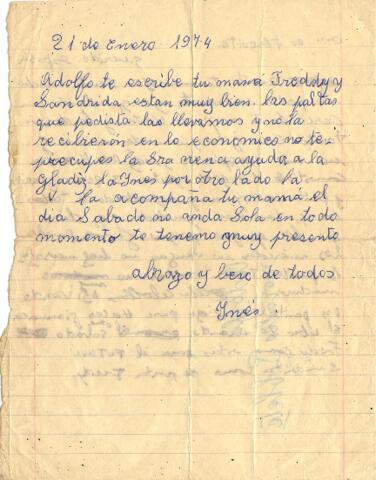 21 de Enero 1974
Adolfo te escribe tu mamá Freddy y
Sandrida estan muy bien. las paltas
que pedista las llevamos y no la
recibierón en lo economico no te
precupes la Sra nena ayuda a la
Gladiz la Inés por otro lado la
V la acompaña tu mamá el
dia Sabado no anda Sola en todo
momento te tenemo muy presente
abrazo y beso de todos
Inés.